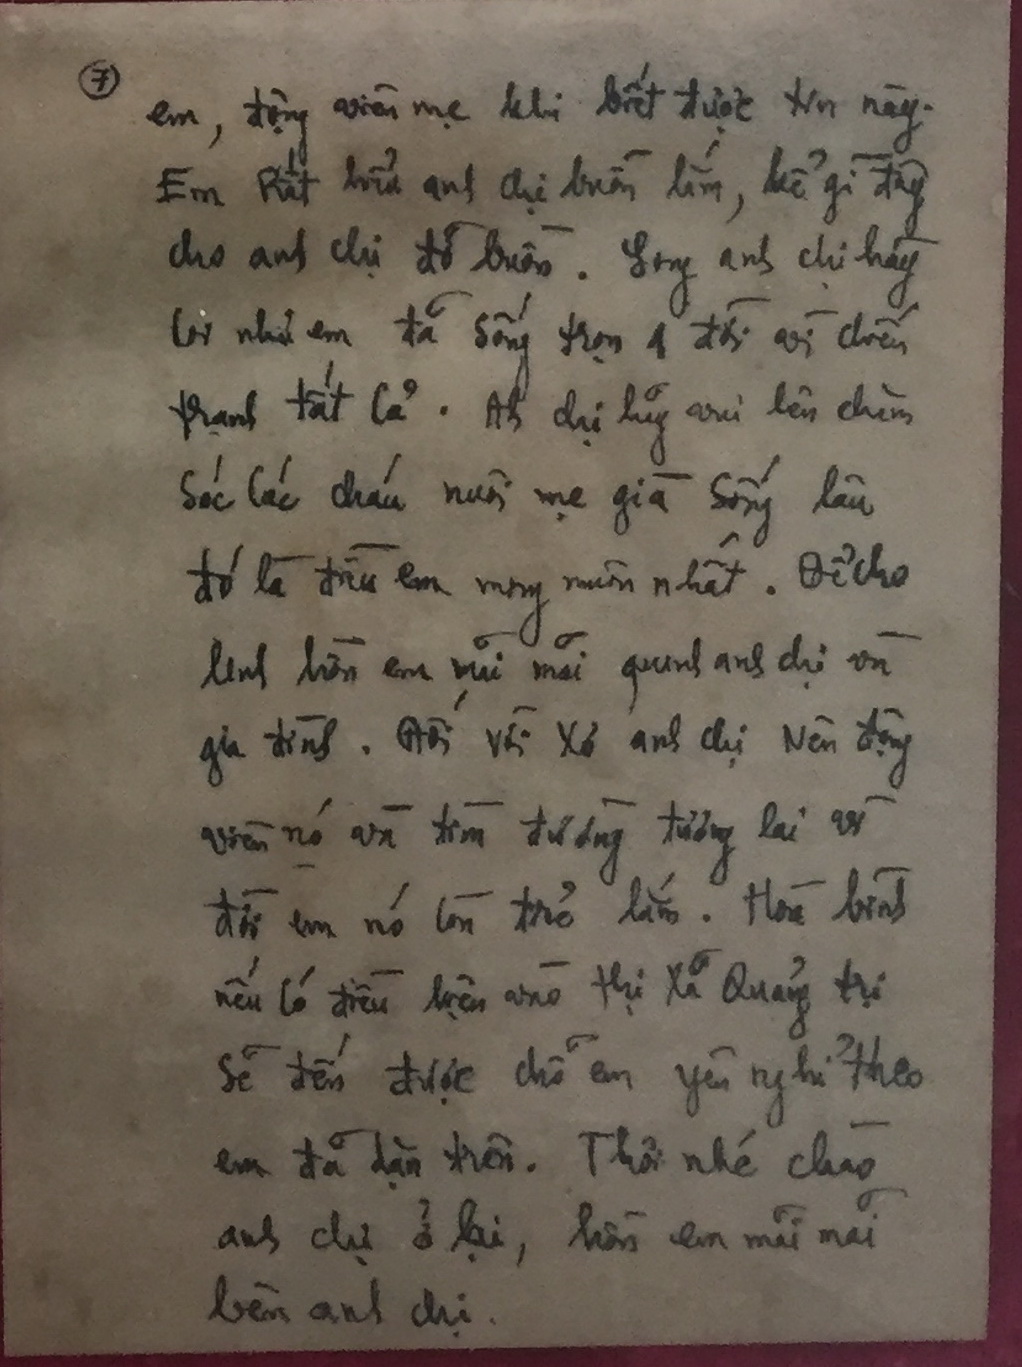 ⑦
em, động viên mẹ khi biết được tin này.
Em rất hiểu anh chị buồn lắm, kể gì đây
cho anh chị đỡ buồn. Song anh chị hãy
coi như em đã sống trọn 1 đời vì chiến
tranh tất cả. Ah chị hãy vui lên chăm
sóc các cháu nuôi mẹ già sống lâu
đó là điều em mong muốn nhất. Để cho
linh hồn em mãi mãi quanh anh chị và
gia đình. Đối với Xơ anh chị Nên động
viên nó và tìm đường tương lai vì
đời em nó còn trẻ lắm. Hoà bình
nếu có điều kiện vào thị xã Quảng trị
sẽ đến được chỗ em yên nghỉ theo
em đã dặn trên. Thôi nhé chào
anh chị ở lại, hồn em mãi mãi
bên anh chị.